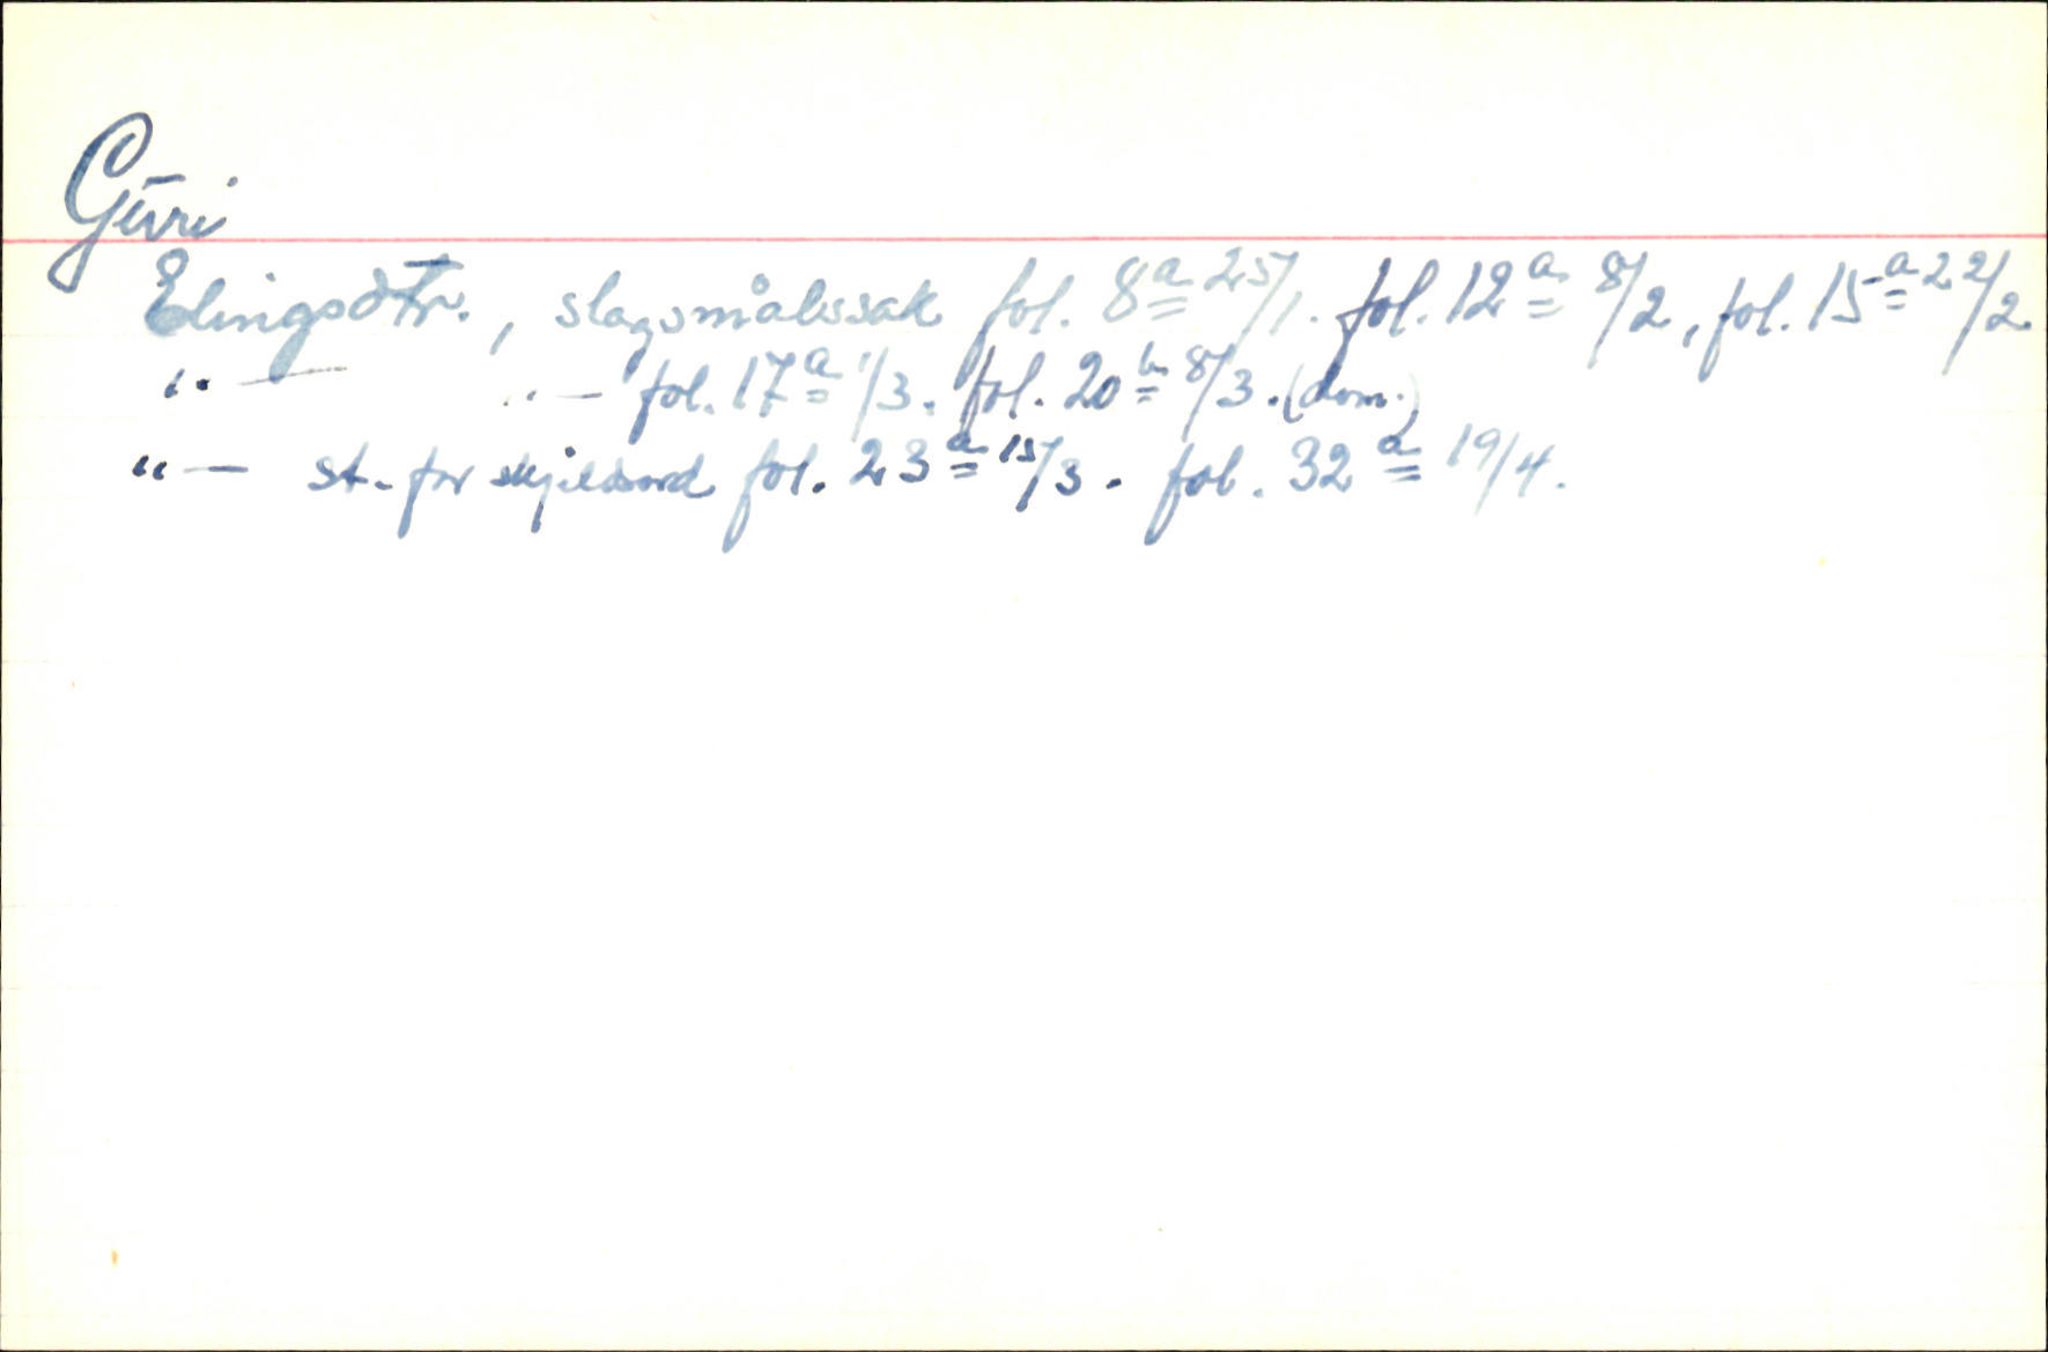 Guri
Elingsdtr., slagsmålssak fol. 8a 25/1. fol. 12a 8/2, fol. 15a 22/2.
"— "— fol. 17a 1/3. fol. 20b 8/3. (dom.)
"— st. for skjeldsord fol. 23a 15/3. fol. 32a 19/4.